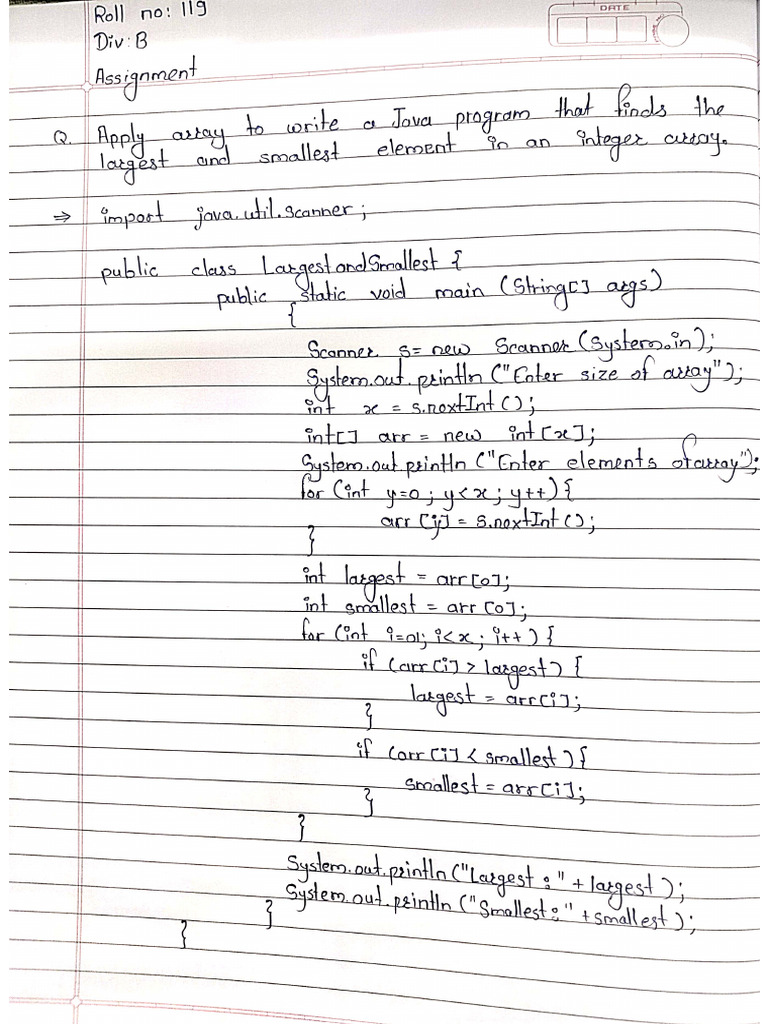 DATE
Roll no: 119
Div: B
Assignment
Q. Apply array to write a Java program that finds the
largest and smallest element in an integer array.
⇒ import java.util.scanner;
public class LargestandSmallest {
public static void main (String[] args)
{
Scanner s= new Scanner (System.in);
System.out.println ("Enter size of array");
int x = s.nextInt ();
int[] arr = new int [x];
System.out.println ("Enter elements of array");
for (int y=0; y<x; y++) {
arr [y] = s.nextInt ();
}
int largest = arr[0];
int smallest = arr [0];
for (int i=01; i<x; i++) {
if (arr[i] > largest) {
largest = arr[i];
}
if (arr [i] < smallest) {
smallest = arr[i];
}
}
System.out.println ("Largest:" + largest);
System.out.println ("Smallest:" + smallest);
}
}